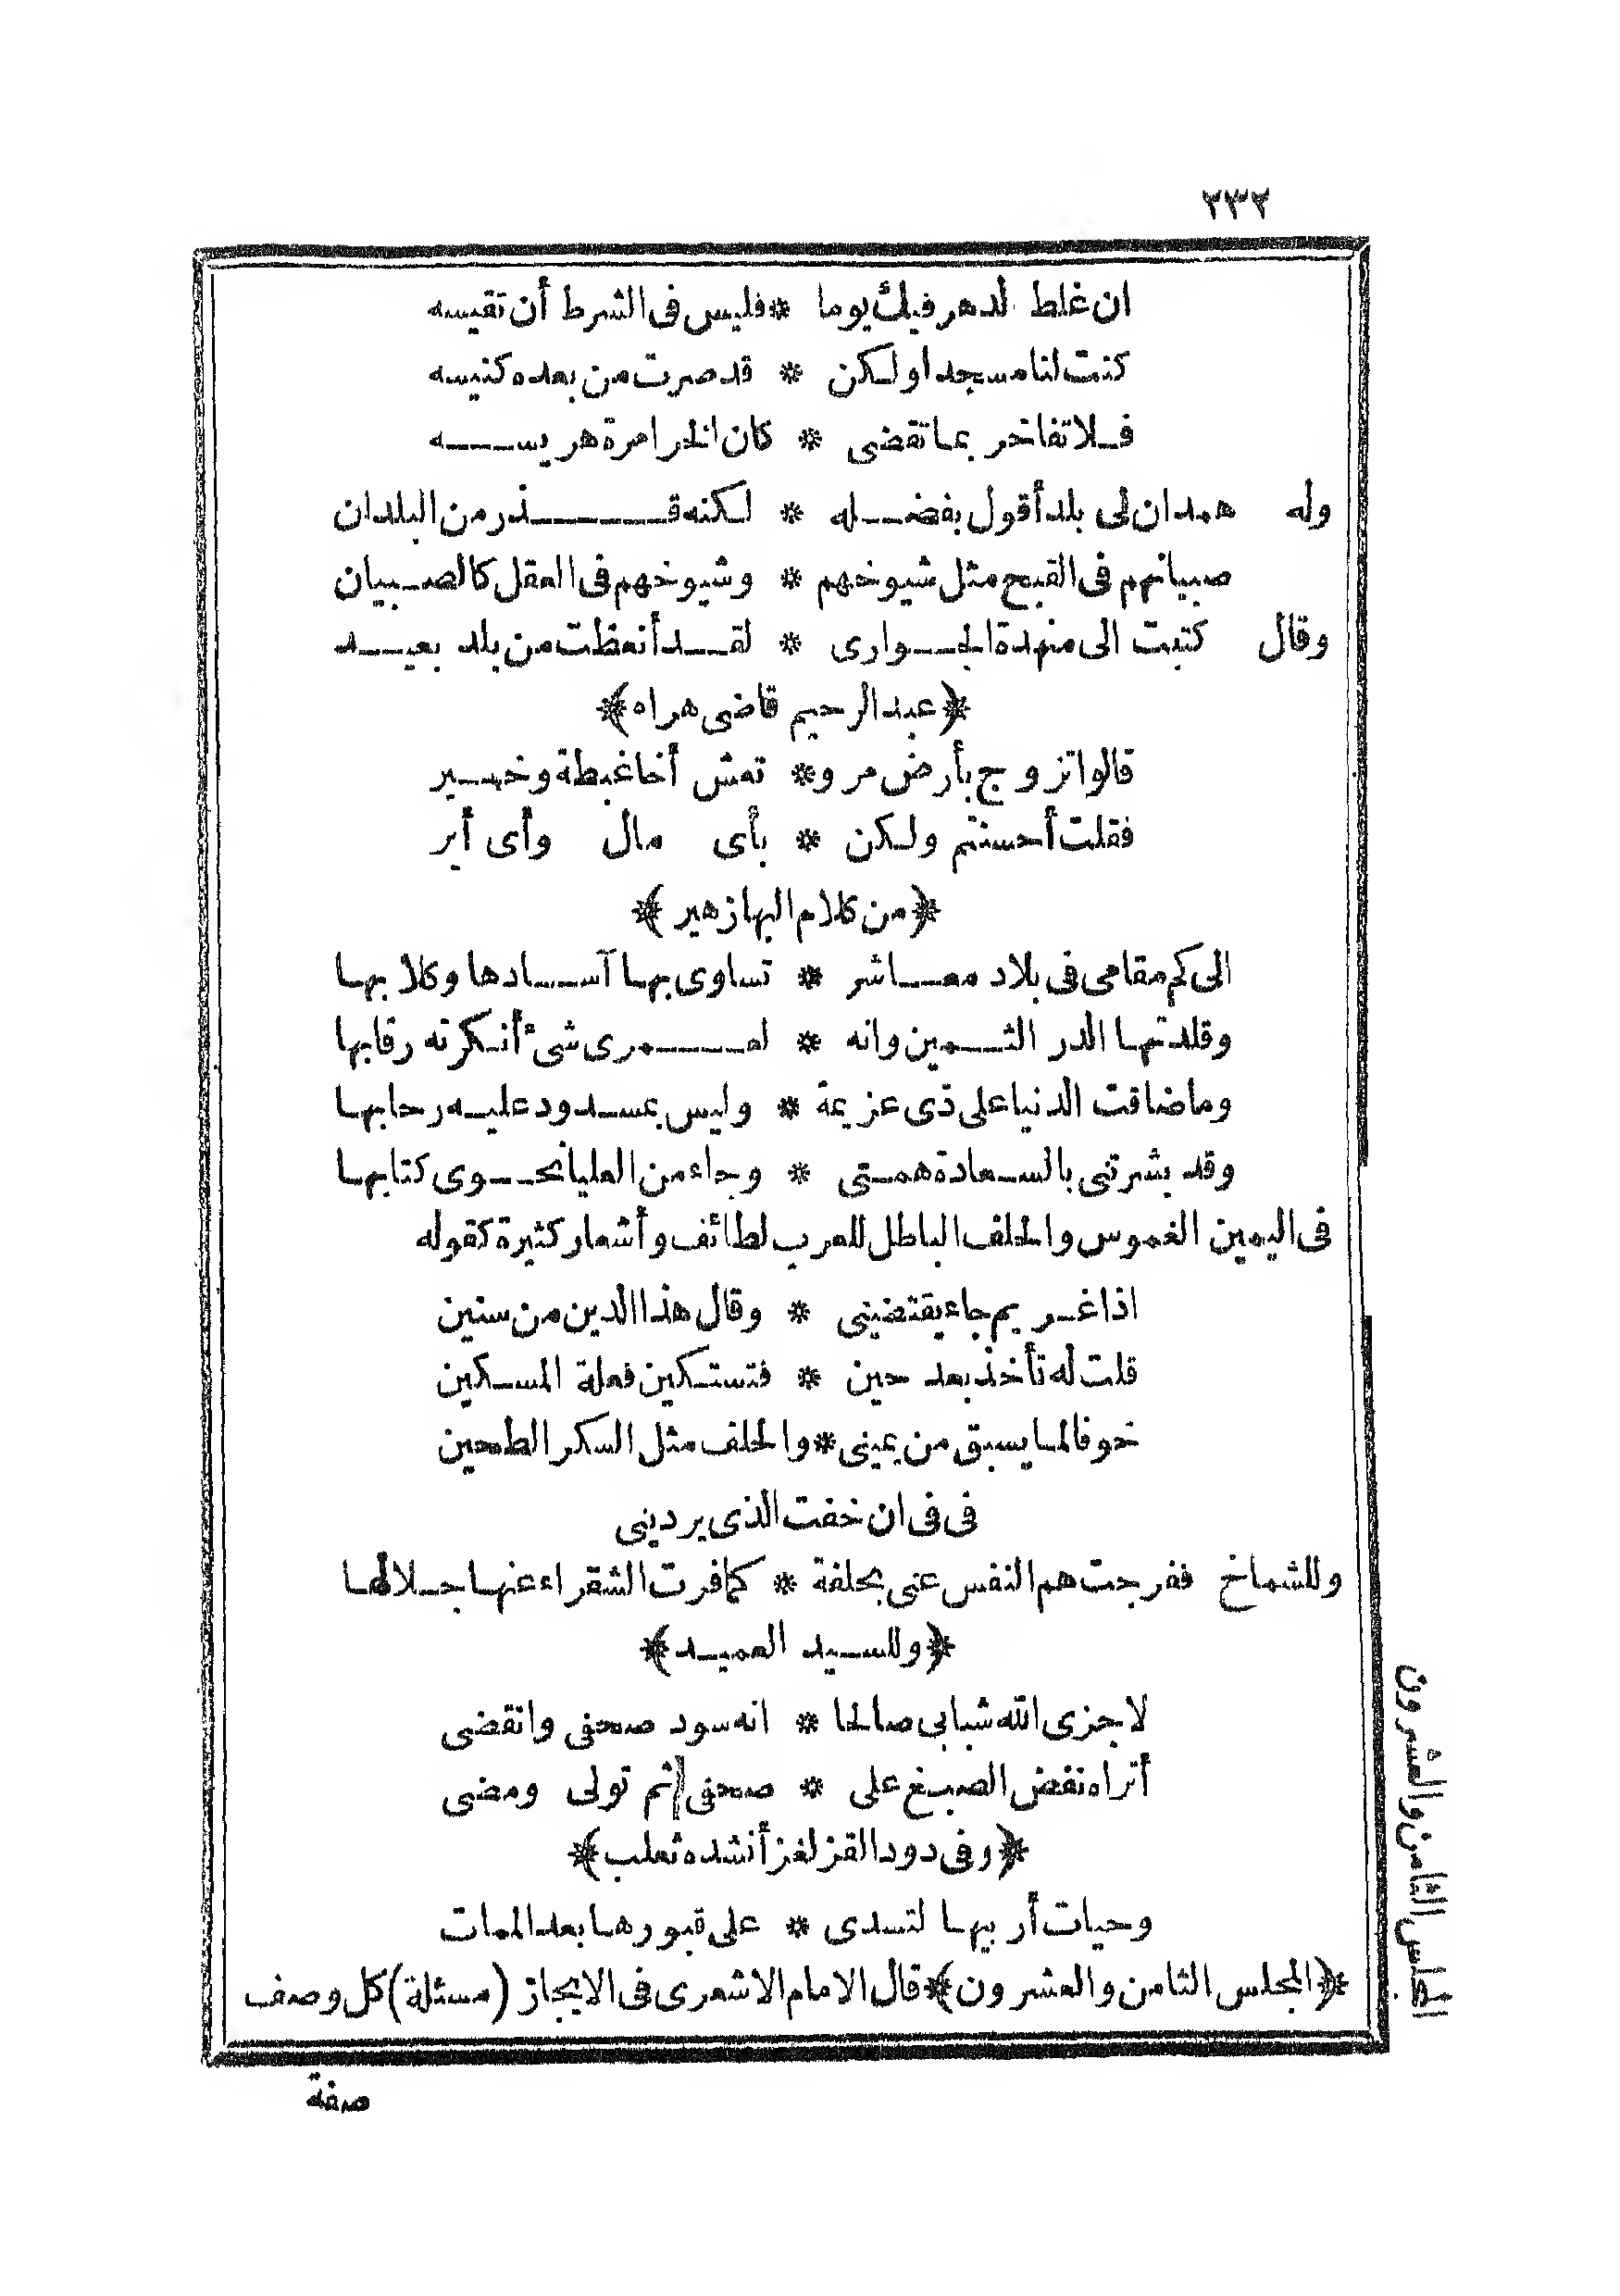 ٢٣٢
ان غلط الدهر فيك يوما * فليس فى الشرط أن تقيسه
كنت لنا مسجدا ولكن * قد صرت من بعده كنيسه
فلا تفاخر بما تقضى * كان الخرا مرة هريسه
وله همدان لى بلد أقول بفضله * لكنه قذر من البلدان
صبيانهم فى القبح مثل شيوخهم * وشيوخهم فى العقل كالصبيان
وقال كتبت الى منهدة الجوارى * لقد أنعظت من بلد بعيد
﴿عبد الرحيم قاضى هراه﴾
قالوا تزوج بأرض مرو * تعش أخا غبطة وخير
فقلت أحسنتم ولكن * بأى مال وأى أير
﴿من كلام البها زهير﴾
الى كم مقامى فى بلاد معاشر * تساوى بها آسادها وكلابها
وقلدتها الدر الثمين وانه * لعمرى شئ أنكرته رقابها
وما ضاقت الدنيا على ذى عزيمة * وليس بمسدود عليه رحابها
وقد بشرتنى بالسعادة همتى * وجاء من العليا نحوى كتابها
فى اليمين الغموس والحلف الباطل للعرب لطائف وأشعار كثيرة كقوله
اذا غريم جاء يقتضينى * وقال هذا الدين من سنين
قلت له تأخذ بعد حين * فتستكين فعلة المسكين
خوفا لما يسبق من يمينى * والحلف مثل السكر الطحين
فى فى ان خفت الذى يردينى
وللشماخ ففرجت هم النفس عنى بحلفة * كما فرت الشقراء عنها جلالها
﴿وللسيد العميد﴾
لا جزى الله شبابى صالحا * انه سود صحفى وانقضى
أتراه نفض الصبغ على * صحفى ثم تولى ومضى
﴿وفى دود القز لغز أنشده ثعلب﴾
وحيات أربيها لتسدى * على قبورها بعد الممات
﴿المجلس الثامن والعشرون﴾ قال الامام الاشعرى فى الايجاز (مسئلة) كل وصف
المجلس الثامن والعشرون
صفة